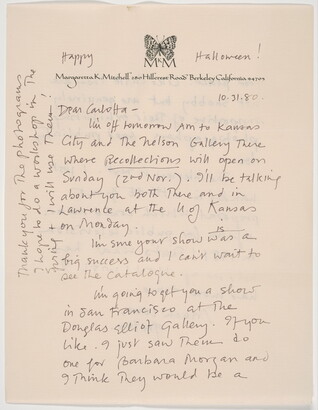 Happy Halloween!
M M
Margaretta K. Mitchell 280 Hillcrest Road Berkeley California 94705
10.31.80.
Dear Carlotta -
I'm off tomorrow am to Kansas
City and the Nelson Gallery there
where Recollections will open on
Sunday (2nd Nov.). I'll be talking
about you both there and in
Lawrence at the U of Kansas
on Monday.
I'm sure your show was a
is
big success and I can't wait to
see the catalogue.
I'm going to get you a show
in San Francisco at the
Douglas Elliot Gallery. If you
like. I just saw them do
one for Barbara Morgan and
I think they would be a
Thank you for the photograms
I hope to do a workshop in the
Spring & I will use them!